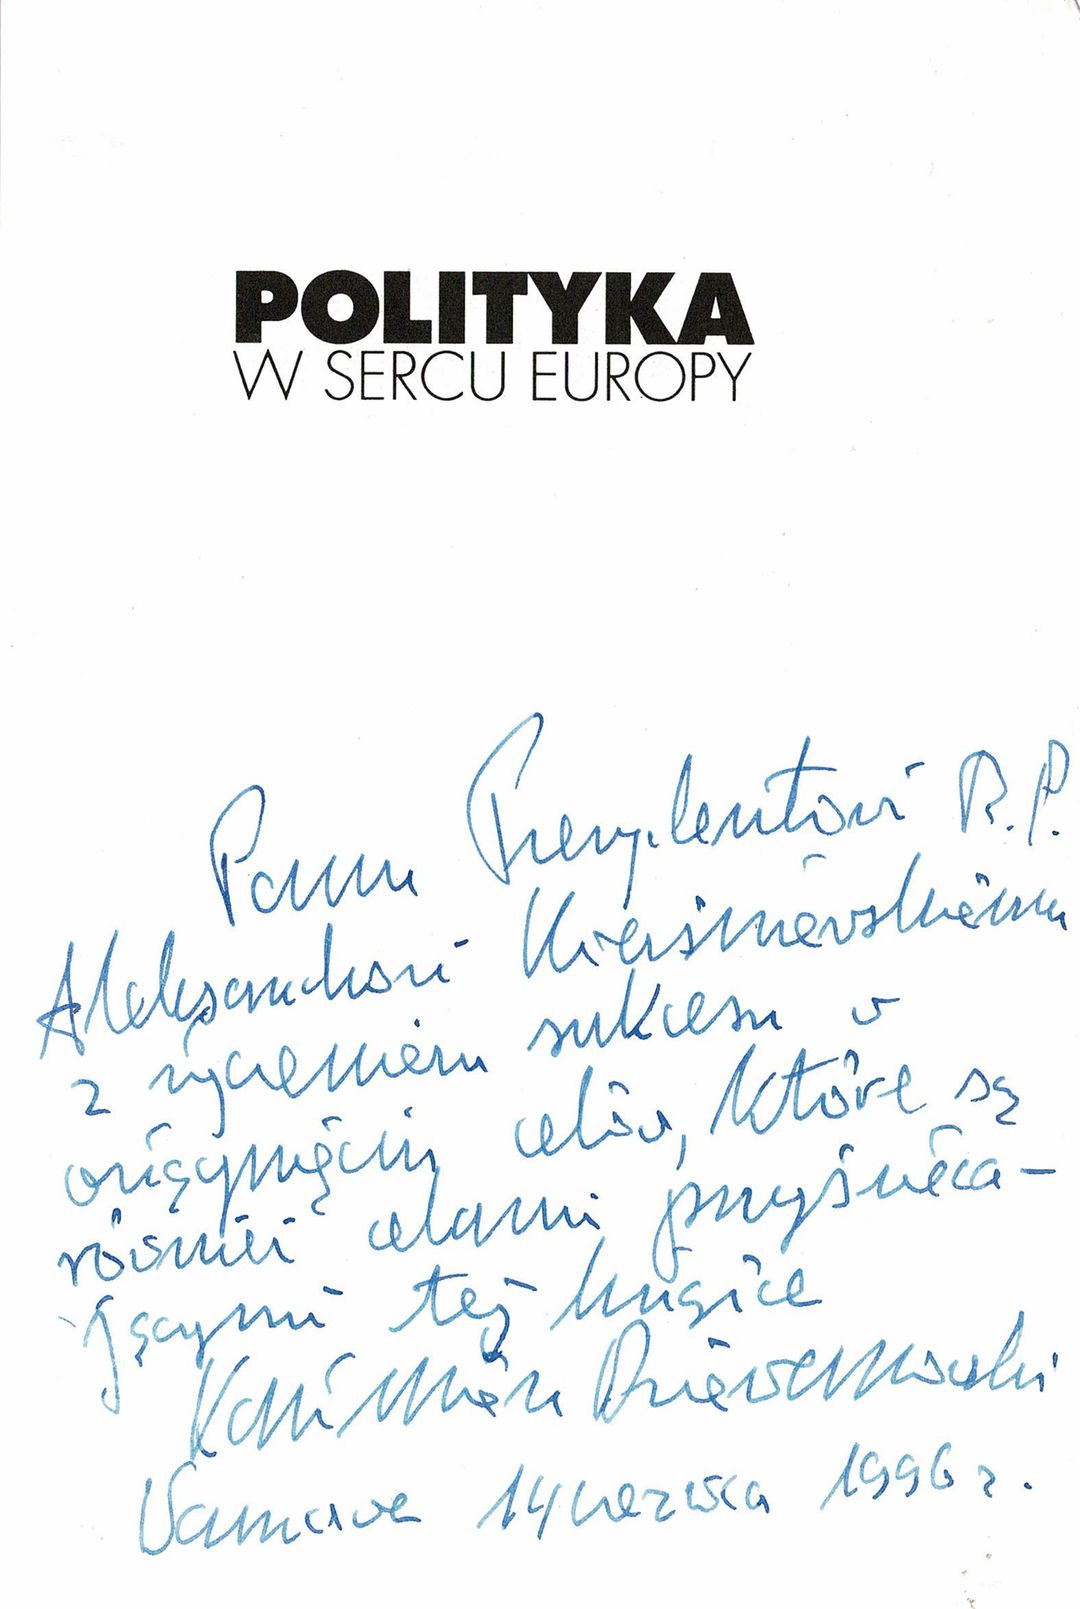 POLITYKA
W SERCU EUROPY
Panu Prezydentowi R.P.
Aleksandrowi Kwaśniewskiemu
z życzeniem sukcesu w
osiągnięciu celów, które są
również celami przyświeca-
jącymi tej książce
Kazimierz Dziewanowski
Warszawa 14 czerwca 1996 r.